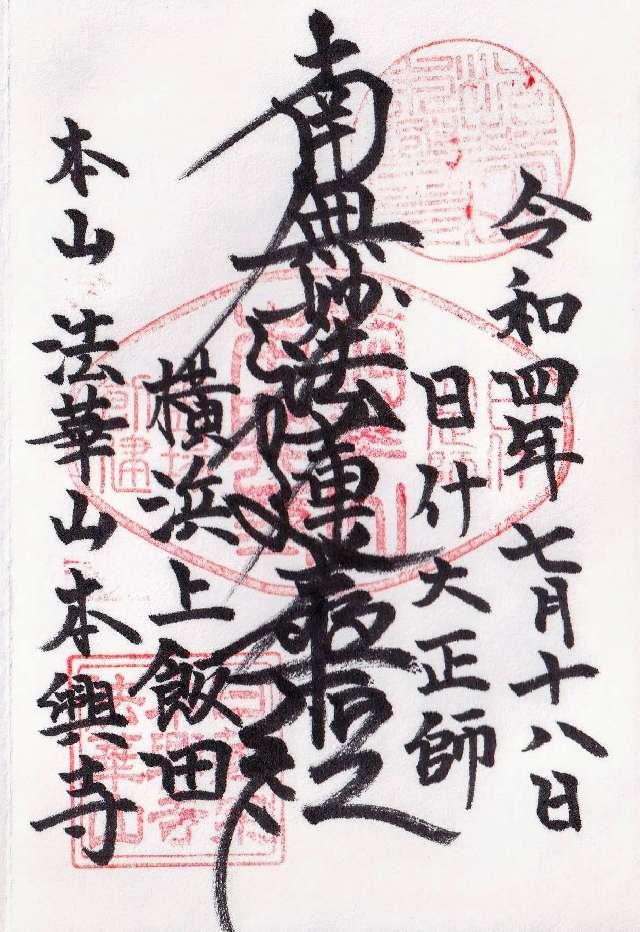 令和四年七月十八日
日什大正師
南無妙法蓮華經
横浜上飯田
本山 法華山 本興寺